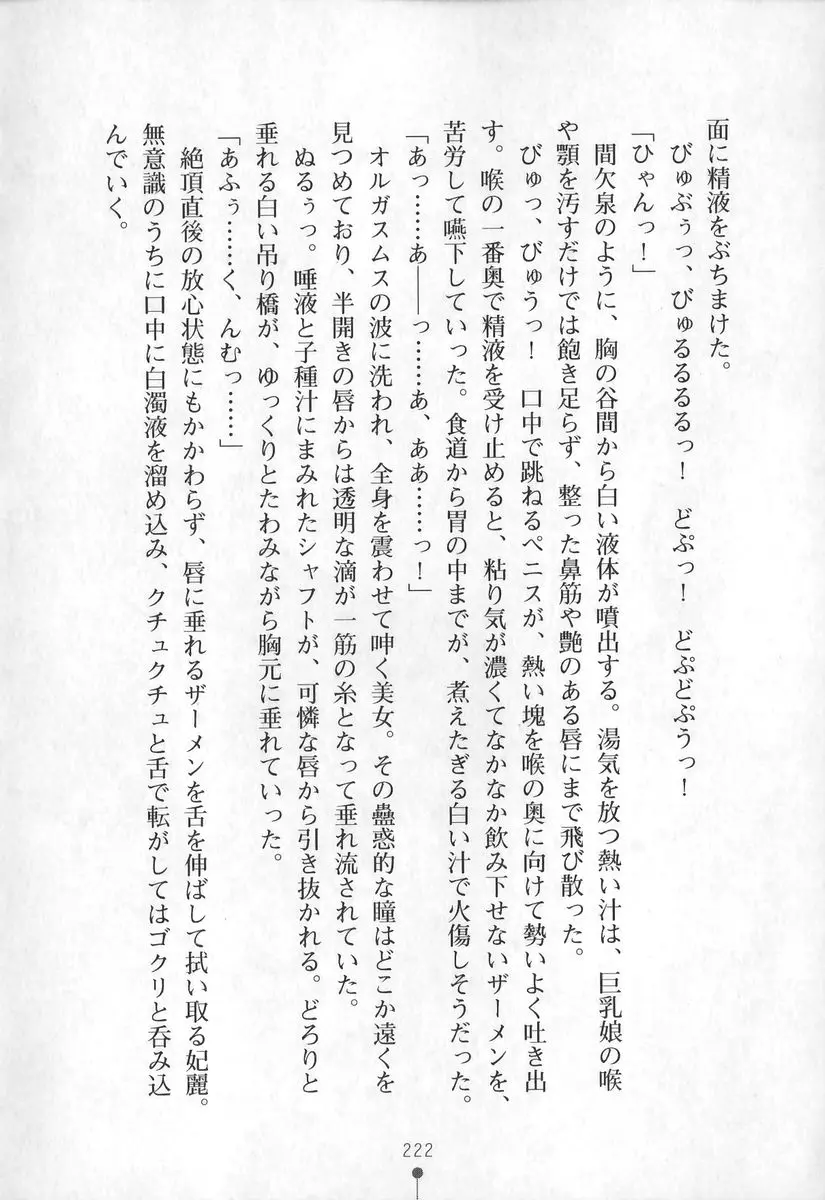 面に精液をぶちまけた。
　びゅぶぅっ、びゅるるるるっ！　どぷっ！　どぷどぷうっ！
「ひゃんっ！」
　間欠泉のように、胸の谷間から白い液体が噴出する。湯気を放つ熱い汁は、巨乳娘の喉
や顎を汚すだけでは飽き足らず、整った鼻筋や艶のある唇にまで飛び散った。
　びゅっ、びゅうっ！　口中で跳ねるペニスが、熱い塊を喉の奥に向けて勢いよく吐き出
す。喉の一番奥で精液を受け止めると、粘り気が濃くてなかなか飲み下せないザーメンを、
苦労して嚥下していった。食道から胃の中までが、煮えたぎる白い汁で火傷しそうだった。
「あっ……あ――っ……あ、ああ……っ！」
　オルガスムスの波に洗われ、全身を震わせて呻く美女。その蠱惑的な瞳はどこか遠くを
見つめており、半開きの唇からは透明な滴が一筋の糸となって垂れ流されていた。
　ぬるぅっ。唾液と子種汁にまみれたシャフトが、可憐な唇から引き抜かれる。どろりと
垂れる白い吊り橋が、ゆっくりとたわみながら胸元に垂れていった。
「あふぅ……く、んむっ……」
　絶頂直後の放心状態にもかかわらず、唇に垂れるザーメンを舌を伸ばして拭い取る妃麗。
無意識のうちに口中に白濁液を溜め込み、クチュクチュと舌で転がしてはゴクリと呑み込
んでいく。
222